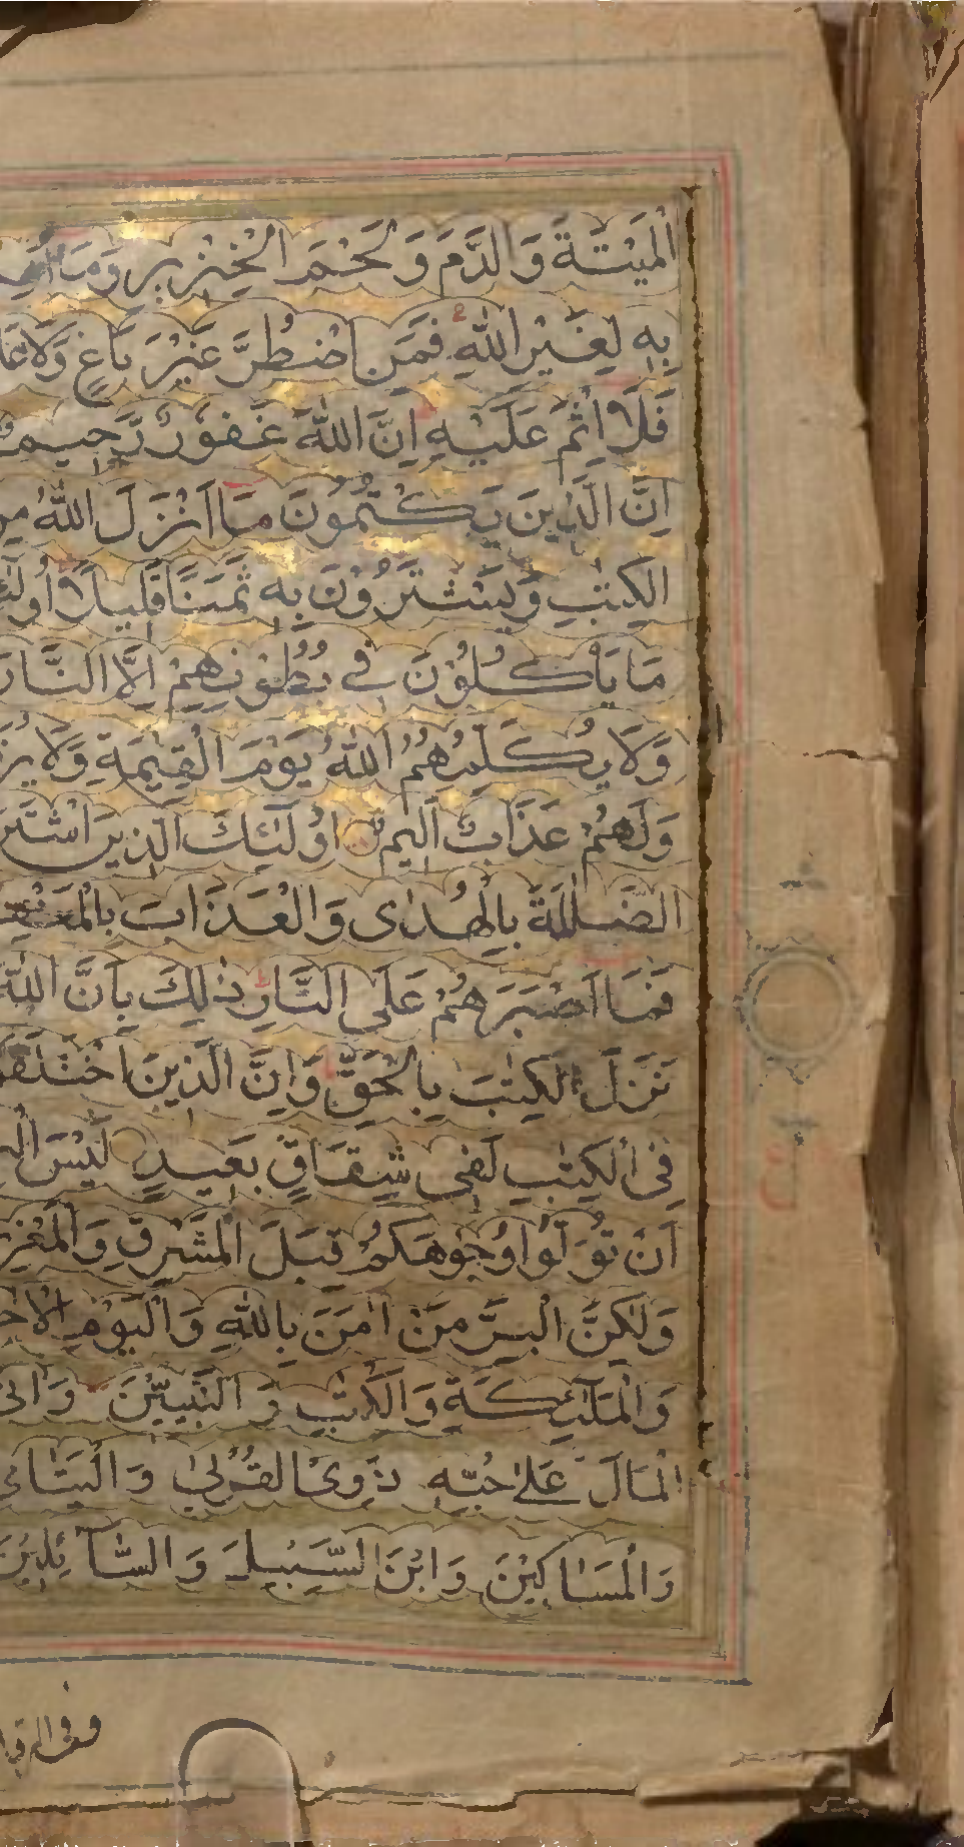 الْمَيْتَةَ وَالدَّمَ وَلَحْمَ الْخِنْزِيرِ وَمَا
بِهِ لِغَيْرِ اللّٰهِ فَمَنِ اضْطُرَّ غَيْرَ بَاغٍ وَلَا
فَلَا اِثْمَ عَلَيْهِ اِنَّ اللّٰهَ غَفُورٌ رَّحِيمٌ
اِنَّ الَّذِينَ يَكْتُمُونَ مَا اَنْزَلَ اللّٰهُ
الْكِتٰبِ وَيَشْتَرُوْنَ بِهِ ثَمَنًا قَلِيلًا
مَا يَأْكُلُوْنَ فِي بُطُوْنِهِمْ اِلَّا النَّارَ
وَلَا يُكَلِّمُهُمُ اللّٰهُ يَوْمَ الْقِيٰمَةِ وَلَا
وَلَهُمْ عَذَابٌ اَلِيمٌ اُولٰئِكَ الَّذِينَ
الضَّلٰلَةَ بِالْهُدٰى وَالْعَذَابَ
فَمَا اَصْبَرَهُمْ عَلَى النَّارِ ذٰلِكَ بِاَنَّ اللّٰهَ
نَزَّلَ الْكِتٰبَ بِالْحَقِّ وَاِنَّ الَّذِينَ
فِي الْكِتٰبِ لَفِي شِقَاقٍ بَعِيدٍ لَيْسَ
اَنْ تُوَلُّوْا وُجُوْهَكُمْ قِبَلَ الْمَشْرِقِ
وَلٰكِنَّ الْبِرَّ مَنْ اٰمَنَ بِاللّٰهِ وَالْيَوْمِ
وَالْمَلٰئِكَةِ وَالْكِتٰبِ وَالنَّبِيّٖنَ
الْمَالَ عَلٰى حُبِّهِ ذَوِى الْقُرْبٰى
وَالْمَسَاكِيْنَ وَابْنَ السَّبِيْلِ وَالسَّآئِلِيْنَ